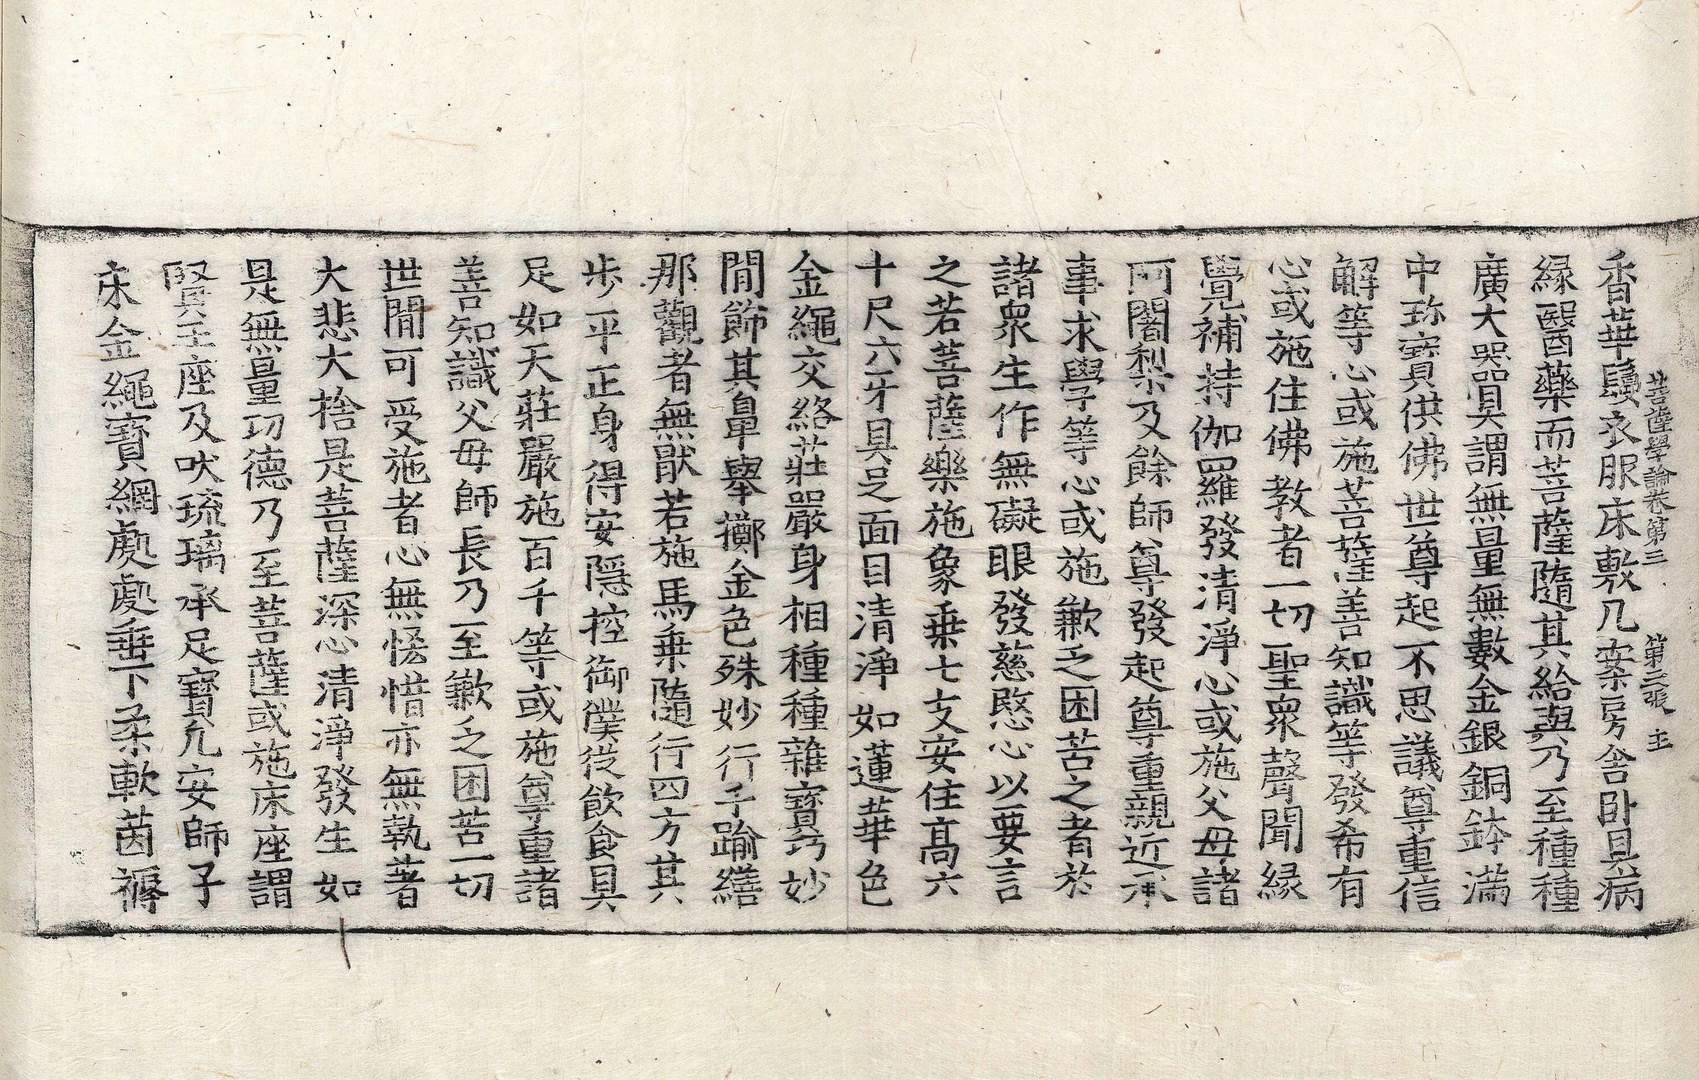 菩薩學論卷第三　第二張　主
香華鬘衣服床敷几案房舍卧具病
緣醫藥而菩薩隨其給與乃至種種
廣大器具謂無量無數金銀銅鉢滿
中珎寶供佛世尊起不思議尊重信
解等心或施菩薩善知識等發希有
心或施住佛教者一切聖衆聲聞緣
覺補持伽羅發清淨心或施父母諸
阿闍梨及餘師尊發起尊重親近承
事求學等心或施歉乏困苦之者於
諸衆生作無礙眼發慈愍心以要言
之若菩薩樂施象乗七支安住高六
十尺六牙具足面目清淨如蓮華色
金繩交絡莊嚴身相種種雜寶巧妙
閒飾其鼻舉擲金色殊妙行千踰繕
那觀者無猒若施馬乗隨行四方其
步平正身得安隱控御僕從飲食具
足如天莊嚴施百千等或施尊重諸
善知識父母師長乃至歉乏困苦一切
世閒可受施者心無悋惜亦無執著
大悲大捨是菩薩深心清淨發生如
是無量功德乃至菩薩或施床座謂
賢王座及吠琉璃承足寶几安師子
床金繩寶網處處垂下柔軟茵褥